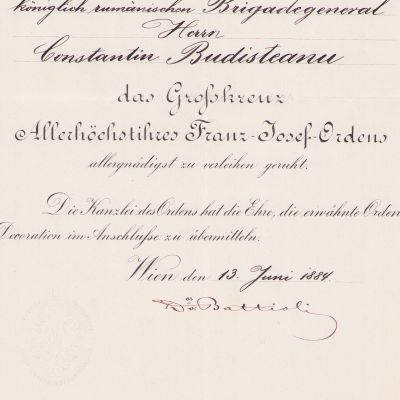 königlich rumänischen Brigadegeneral
Herrn
Constantin Budisteanu
das Großkreuz
Allerhöchstihres Franz-Josef-Ordens
allergnädigst zu verleihen geruht.
Die Kanzlei des Ordens hat die Ehre, die erwähnte Orden
Decoration im Anschluße zu übermitteln.
Wien den 13. Juni 1884.
Battioli